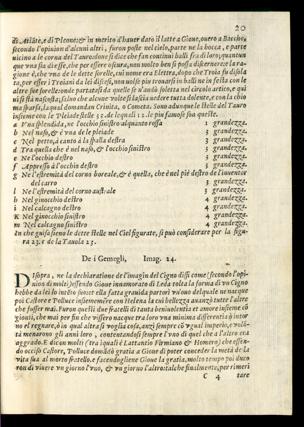 20
di Atlante, & di Pleone; & in merito d'hauer dato il latte a Gioue, ouero a Baccho,
secondo l'opinion d'alcuni altri, furon poste nel cielo, parte ne la bocca, e parte
vicino a le corna del Tauro: done si dice che fan continui balli fra di loro, quantun
que vna sia d'esse, che per essere oscura, non molto ben si possa discernere: e la ra
gione è, che vna de le dette sorelle, cui nome era Elettra, dopo che Troia fu disola
ta, per esser i Troiani da lei discesi, non uolse piu trouarsi in balli ne in festa con le
altre sue sorelle: onde partitasi da quelle se n'andò soletta nel circolo artico, e qui
ui si sta nascosta, saluo che alcune volte si lascia andare tutta scapigliata, con la chio
ma sparsa, la qual domandan Crinita, o Cometa. Sono adunque le stelle del Tauro
insieme con le Pleiade stelle 32. de le quali 12. le piu famose son queste.
a Piu splendida, ne l'occhio sinistro alquanto rossa 1 grandezza.
b Nel naso, & è vna de le pleiade 3 grandezza.
c Nel petto, à canto à la spalla destra 3 grandezza.
d Tra quella che è nel naso, & l'occhio sinistro 3 grandezza.
e Ne l'occhio destro 3 grandezza.
f Appresso à l'occhio destro 3 grandezza.
g Ne l'estremità del corno boreale, & è questa, che è nel piè destro de l'inuentor
del carro 3 grandezza.
h Ne l'estremità del corno australe 3 grandezza.
i Nel ginocchio destro 4 grandezza.
k Nel calcagno destro 4 grandezza.
K Nel ginocchio sinistro 4 grandezza.
m Nel calcagno sinistro 4 grandezza.
In che guisa sieno le dette stelle nel Ciel figurate, si può considerare per la figu-
ra 23. e de la Tauola 23.
De i Gemegli, Imag. 24.
DIsopra, ne la dechiaratione de l'imagin del Cigno dissi come (secondo l'opi
nion di molti) essendo Gioue innamorato di Leda tolta la forma di vn Cigno
hebbe da lei lo intẽto suo: et ella fatta grauida partorì vn ouo del quale ne nacquer
poi Castore e Polluce insiememẽre con Helena la cui bellezza auanzò tutte l'altre
che fosser mai. Furon questi due fratelli di tanta beniuolentia et amore insieme cõ
gionti, che mai per fin che vissero nacque tra loro vna minima differentia ò intor
no el regnare, ò in qual altra si voglia cosa, anzi sempre cõ vgual imperio, e volõ
tà menarono gli anni loro, contentandosi sempre l'vno di quel che a l'altro era
aggrado. E dicon molti (tra i quali è Lattantio Firmiano & Homero) che essen-
do occiso Castore, Polluce domãdò gratia a Gioue di poter conceder la metà de la
vita sua al morto fratello. e facendogliene Gioue la gratia, molto tempo poi duca
ron di viuere vn giorno l'vno, & vn giorno l'altro: tal che finalmente, per rimeri
C 4 tare